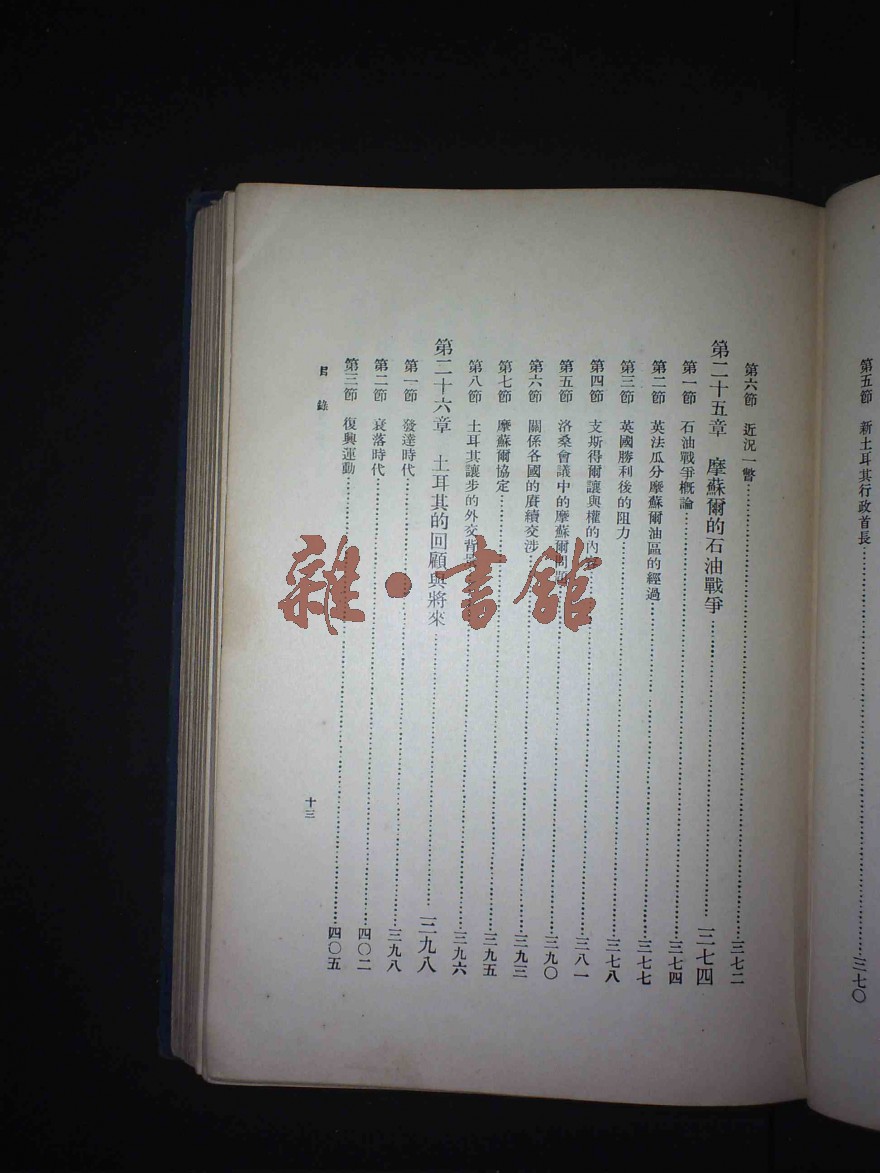 第五節 新土耳其行政首長……三七〇
第六節 近況一瞥……三七二
第二十五章 摩蘇爾的石油戰爭……三七四
第一節 石油戰爭概論……三七四
第二節 英法瓜分摩蘇爾油區的經過……三七七
第三節 英國勝利後的阻力……三七八
第四節 支斯得爾讓與權的內容……三八一
第五節 洛桑會議中的摩蘇爾問題……三九〇
第六節 關係各國的賡續交涉……三九三
第七節 摩蘇爾協定……三九五
第八節 土耳其讓步的外交背景……三九六
第二十六章 土耳其的回顧與將來……三九八
第一節 發達時代……三九八
第二節 衰落時代……四〇二
第三節 復興運動……四〇五
目錄
十三
雜·書館